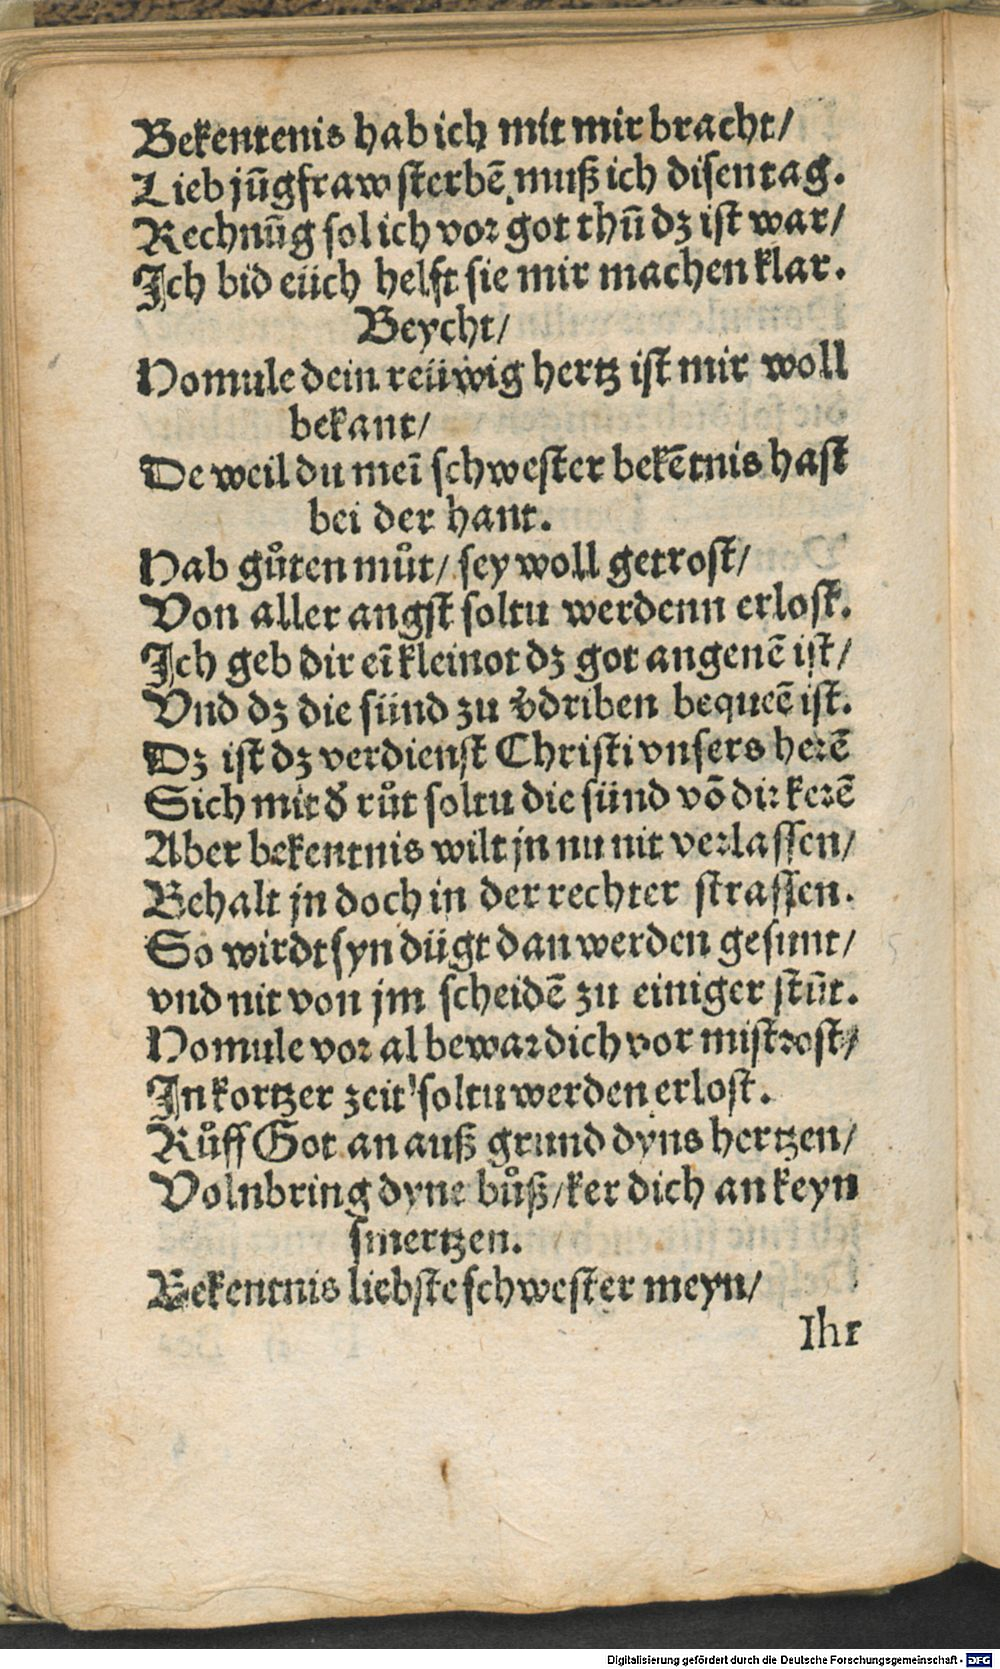 Bekentenis hab ich mit mir bracht/
Lieb jũgfraw sterbẽ muß ich disen tag.
Rechnũg sol ich vor got thũ dz ist war/
Ich bid eüch helft sie mir machen klar.
Beycht/
Homule dein reüwig hertz ist mir woll
bekant/
De weil du meĩ schwester bekẽtnis hast
bei der hant.
Hab gůten můt/ sey woll getrost/
Von aller angst soltu werdenn erlost.
Ich geb dir eĩ kleinot dz got angenẽ ist/
Vnd dz die sünd zu v̾driben bequeẽ ist.
Dz ist dz verdienst Christi vnsers herẽ
Sich mit d̾ růt soltu die sünd võ dir kerẽ
Aber bekentnis wilt jn nu nit verlassen/
Behalt jn doch in der rechter strassen.
So wirdt syn dügt dan werden gesunt/
vnd nit von jm scheidẽ zu einiger stũt.
Homule vor al bewar dich vor mistrost/
In kortzer zeit soltu werden erlost.
Růff Got an auß grund dyns hertzen/
Volnbring dyne bůß/ ker dich an keyn
smertzen.
Bekentnis liebste schwester meyn/
Ihr
Digitalisierung gefördert durch die Deutsche Forschungsgemeinschaft - DFG